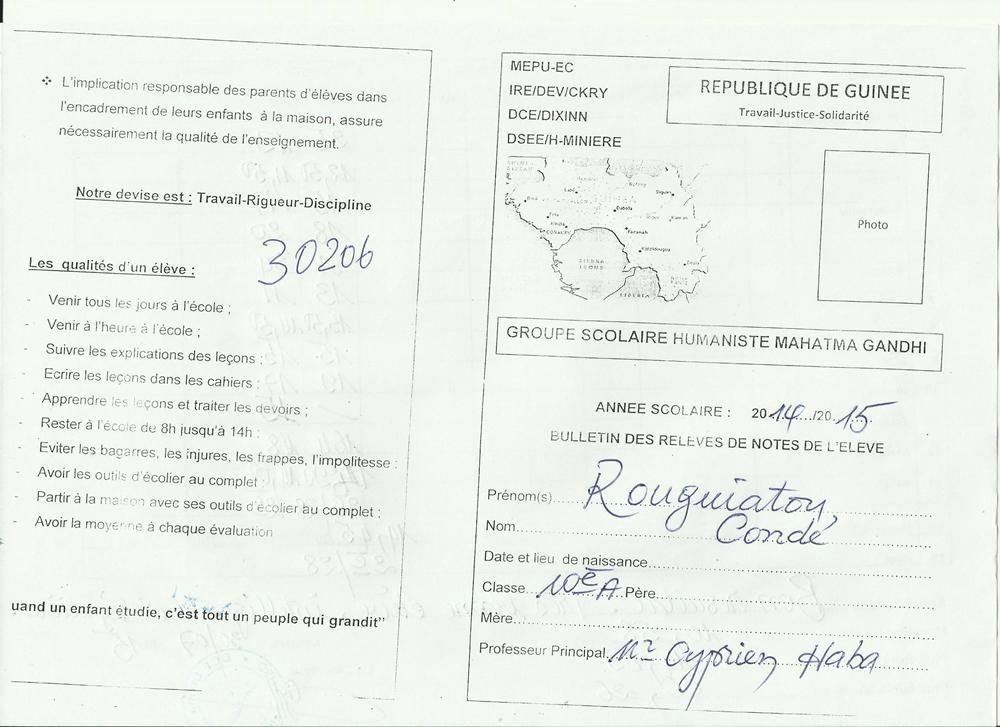 ❖ L'implication responsable des parents d'élèves dans
l'encadrement de leurs enfants à la maison, assure
nécessairement la qualité de l'enseignement.
Notre devise est : Travail-Rigueur-Discipline
30206
Les qualités d'un élève :
- Venir tous les jours à l'école ;
- Venir à l'heure à l'école ;
- Suivre les explications des leçons ;
- Ecrire les leçons dans les cahiers ;
- Apprendre les leçons et traiter les devoirs ;
- Rester à l'école de 8h jusqu'à 14h ;
- Eviter les bagarres, les injures, les frappes, l'impolitesse ;
- Avoir les outils d'écolier au complet ;
- Partir à la maison avec ses outils d'écolier au complet ;
- Avoir la moyenne à chaque évaluation
uand un enfant étudie, c'est tout un peuple qui grandit"
MEPU-EC
IRE/DEV/CKRY
DCE/DIXINN
DSEE/H-MINIERE
REPUBLIQUE DE GUINEE
Travail-Justice-Solidarité
Photo
GROUPE SCOLAIRE HUMANISTE MAHATMA GANDHI
ANNEE SCOLAIRE : 2014.../20.15
BULLETIN DES RELEVES DE NOTES DE L'ELEVE
Prénom(s)....Rouguiatou
Nom....Condé
Date et lieu de naissance....
Classe...10e A Père....
Mère....
Professeur Principal. Mr Cyprien Haba